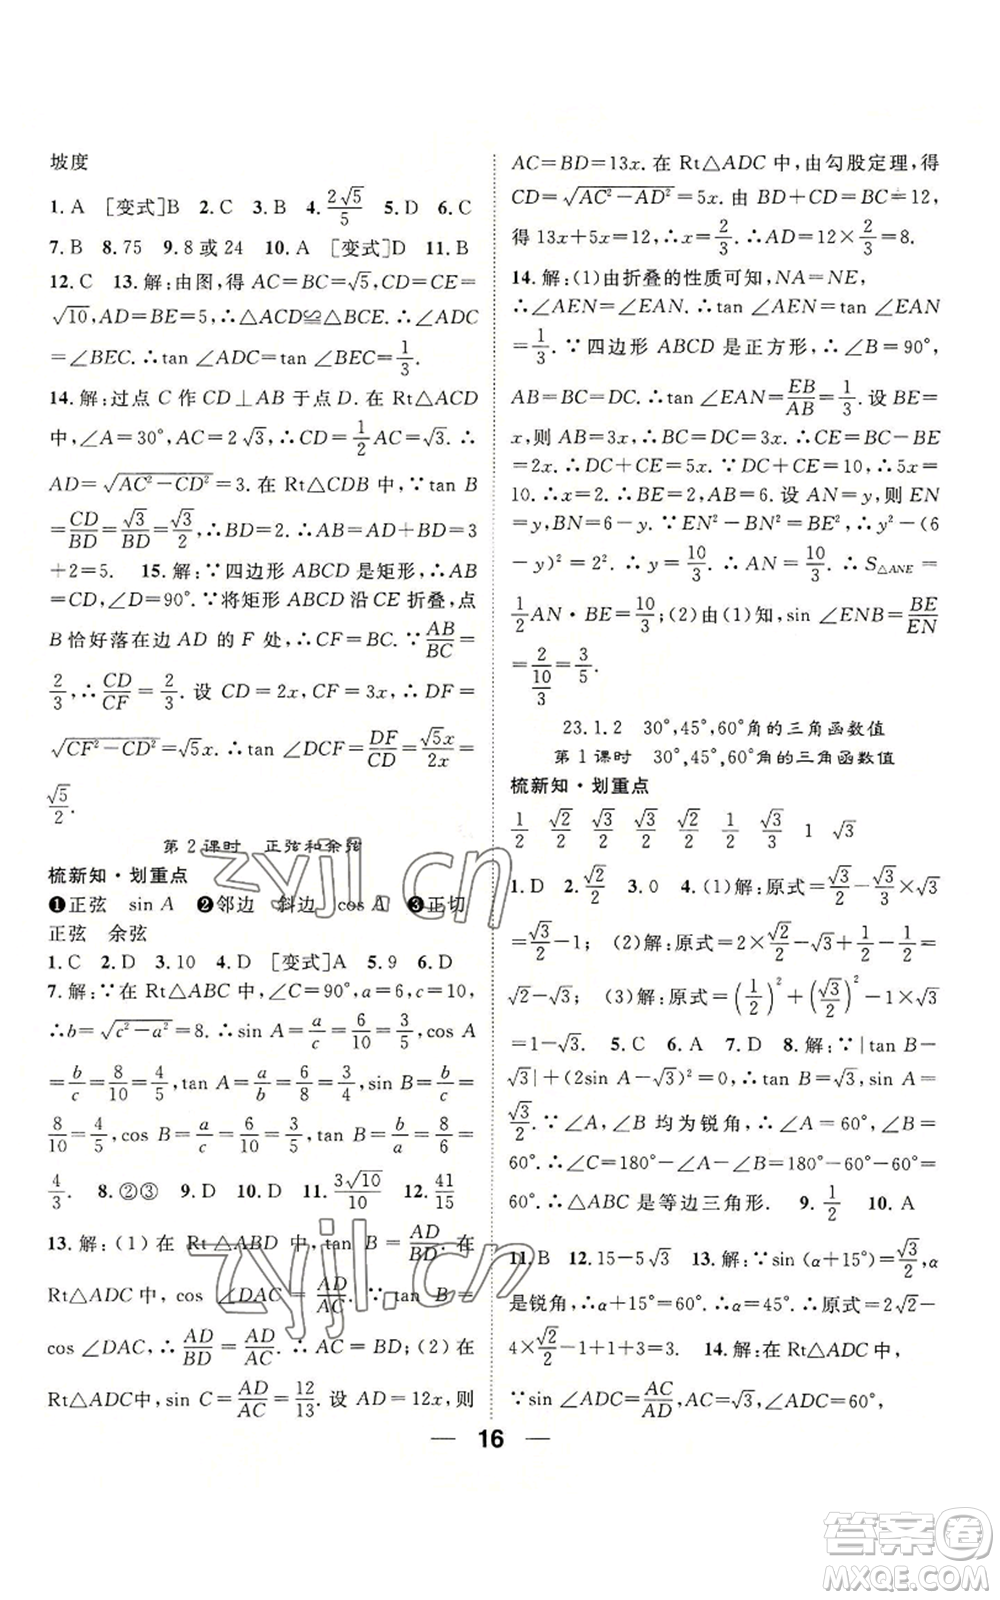 坡度
1. A [变式]B 2. C 3. B 4. 2√5/5 5. D 6. C
7. B 8. 75 9. 8 或 24 10. A [变式]D 11. B
12. C 13. 解:由图,得 AC=BC=√5,CD=CE=
√10,AD=BE=5,∴△ACD≌△BCE.∴∠ADC
=∠BEC.∴tan ∠ADC=tan ∠BEC=1/3.
14. 解:过点 C 作 CD⊥AB 于点 D. 在 Rt△ACD
中,∠A=30°,AC=2√3,∴CD=1/2AC=√3.∴
AD=√(AC²-CD²)=3. 在 Rt△CDB 中,∵tan B
=CD/BD=√3/BD=√3/2,∴BD=2.∴AB=AD+BD=3
+2=5. 15. 解:∵四边形 ABCD 是矩形,∴AB
=CD,∠D=90°.∵将矩形 ABCD 沿 CE 折叠,点
B 恰好落在边 AD 的 F 处,∴CF=BC.∵AB/BC=
2/3,∴CD/CF=2/3. 设 CD=2x,CF=3x,∴DF=
√(CF²-CD²)=√5x.∴tan ∠DCF=DF/CD=√5x/2x=
√5/2.
第 2 课时 正弦和余弦
梳新知·划重点
❶正弦 sin A ❷邻边 斜边 cos A ❸正切
正弦 余弦
1. C 2. D 3. 10 4. D [变式]A 5. 9 6. D
7. 解:∵在 Rt△ABC 中,∠C=90°,a=6,c=10,
∴b=√(c²-a²)=8.∴sin A=a/c=6/10=3/5,cos A
=b/c=8/10=4/5,tan A=a/b=6/8=3/4,sin B=b/c=
8/10=4/5,cos B=a/c=6/10=3/5,tan B=b/a=8/6=
4/3. 8. ②③ 9. D 10. D 11. 3√10/10 12. 41/15
13. 解:(1)在 Rt△ABD 中,tan B=AD/BD. 在
Rt△ADC 中,cos ∠DAC=AD/AC.∵tan B=
cos ∠DAC,∴AD/BD=AD/AC.∴AC=BD;(2)在
Rt△ADC 中,sin C=AD/AC=12/13. 设 AD=12x,则
AC=BD=13x. 在 Rt△ADC 中,由勾股定理,得
CD=√(AC²-AD²)=5x. 由 BD+CD=BC=12,
得 13x+5x=12,∴x=2/3.∴AD=12×2/3=8.
14. 解:(1)由折叠的性质可知,NA=NE,
∴∠AEN=∠EAN.∴tan ∠AEN=tan ∠EAN=
1/3.∵四边形 ABCD 是正方形,∴∠B=90°,
AB=BC=DC.∴tan ∠EAN=EB/AB=1/3. 设 BE=
x,则 AB=3x,∴BC=DC=3x.∴CE=BC-BE
=2x.∴DC+CE=5x.∵DC+CE=10,∴5x=
10.∴x=2.∴BE=2,AB=6. 设 AN=y,则 EN
=y,BN=6-y.∵EN²-BN²=BE²,∴y²-(6
-y)²=2².∴y=10/3.∴AN=10/3.∴S△ANE=
1/2AN·BE=10/3;(2)由(1)知,sin ∠ENB=BE/EN
=2/(10/3)=3/5.
23.1.2 30°,45°,60°角的三角函数值
第 1 课时 30°,45°,60°角的三角函数值
梳新知·划重点
1/2 √3/2 √3/3 √2/2 √2/2 √3/2 1/2 1 √3
1. D 2. √2/2 3. 0 4. (1)解:原式=1/2×√3
=√3/2-1; (2)解:原式=2×√2/2-√3+1/2-1/2=
√2-√3; (3)解:原式=(1/2)²+(√3/2)²-1×√3
=1-√3. 5. C 6. A 7. D 8. 解:∵|tan B-
√3|+(2sin A-√3)²=0,∴tan B=√3,sin A=
√3/2.∵∠A,∠B 均为锐角,∴∠A=60°,∠B=
60°.∴∠C=180°-∠A-∠B=180°-60°-60°=
60°.∴△ABC 是等边三角形. 9. 1/2 10. A
11. B 12. 15-5√3 13. 解:∵sin (α+15°)=√3/2,α
是锐角,∴α+15°=60°.∴α=45°.∴原式=2√2-
4×√2/2-1+1+3=3. 14. 解:在 Rt△ADC 中,
∵sin ∠ADC=AC/AD,AC=√3,∴∠ADC=60°,
16
zyjl.cn
zyjl.cn
答案圈
MXQE.COM